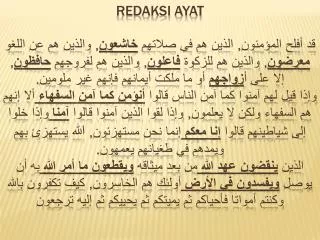 REDAKSI AYAT
قد أفلح المؤمنون, الذين هم في صلاتهم خاشعون, والذين هم عن اللغو
معرضون, والذين هم للزكوة فاعلون, والذين هم لفروجهم حافظون,
إلا على أزواجهم أو ما ملكت أيمانهم فإنهم غير ملومين,
وإذا قيل لهم آمنوا كما آمن الناس قالوا أنؤمن كما آمن السفهاء ألا إنهم
هم السفهاء ولكن لا يعلمون, وإذا لقوا الذين آمنوا قالوا آمنا وإذا خلوا
إلى شياطينهم قالوا إنا معكم إنما نحن مستهزئون, الله يستهزئ بهم
ويمدهم في طغيانهم يعمهون.
الذين ينقضون عهد الله من بعد ميثاقه ويقطعون ما أمر الله به أن
يوصل ويفسدون في الأرض أولئك هم الخاسرون, كيف تكفرون بالله
وكنتم أمواتا فأحياكم ثم يميتكم ثم يحييكم ثم إليه ترجعون